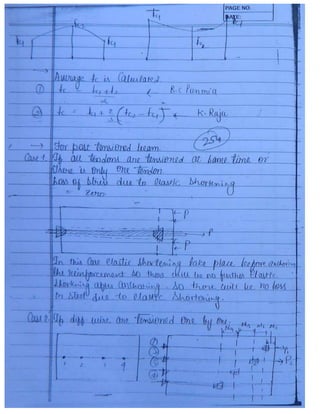 PAGE NO.
DATE:
→ Average fc is Calculated
① fc = fc1 + fc2 / 2 B.C Punmia
② fc = fc1 + 2/3 (fc2 - fc1) ← K. Raju
254
→ For post tensioned beam
Case 1. If all tendons are tensioned at same time or
there is only one tendon
Loss of stress due to elastic shortening
= zero
P
P
P
In this case elastic shortening take place before anchoring
the reinforcement so there will be no further elastic
shortening after anchoring. So there will be no loss
in steel due to elastic shortening.
Case 2. If diff wire are tensioned one by one.
1 2 3 4
①
②
③
④